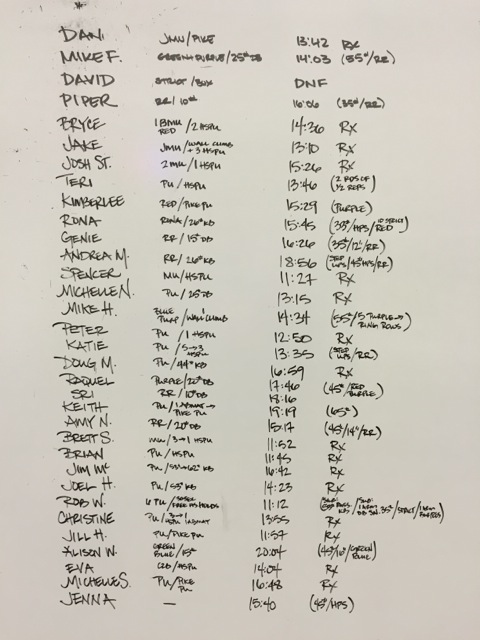 DANI JMU/PIKE 13:42 Rx
MIKE F. GREEN+PURPLE/25# DB 14:03 (55#/RR)
DAVID STRICT/BOX DNF
PIPER RR/10# 16:06 (35#/RR)
BRYCE 1 BMU RED /2 HSPU 14:36 Rx
JAKE JMU/WALL CLIMB +3 HSPU 13:10 Rx
JOSH ST. 2 MU/1 HSPU 15:26 Rx
TERI PU/HSPU 13:46 (2 RDS OF 1/2 REPS)
KIMBERLEE RED/PIKE PU 15:29 (PURPLE)
RONA RING/26# KB 15:45 (33#/HPS/10 STRICT RED)
GENIE RR/15# DB 16:26 (35#/12"/RR)
ANDREA M. RR/26# KB 18:56 (STEP UPS/45# HPS/RR)
SPENCER MU/HSPU 11:27 Rx
MICHELLE N. PU/25# DB 13:15 Rx
MIKE H. BLUE PURP/WALL CLIMB 14:34 (55#/5 PURPLE→RING ROWS)
PETER PU/1 HSPU 12:50 Rx
KATIE PU/5→3 HSPU 13:35 (STEP UPS/RR)
DOUG M. PU/44# KB 16:59 Rx
RAQUEL PURPLE/20# DB 17:46 (45#/RED PURPLE)
SRI RR/10# DB 18:16
KEITH PU/1 ABMAT→PIKE PU 19:19 (65#)
AMY N. RR/20# DB 15:17 (45#/14"/RR)
BRETT S. MU/3→1 HSPU 11:52 Rx
BRIAN PU/HSPU 11:45 Rx
JIM MC PU/53→62# KB 16:42 Rx
JOEL H. PU/53# KB 14:23 Rx
ROB W. 6 PU/ HS HOLDS 11:12
CHRISTINE PU/3→ ABMAT 13:55 Rx
JILL H. PU/PIKE PU 11:57 Rx
ALISON W. GREEN BLUE/15# 20:04 (45#/10"/GREEN BLUE)
EVA C2B/HSPU 14:04 Rx
MICHELLE S. PU/PIKE PU 16:48 Rx
JENNA — 15:40 (45#/HPS)